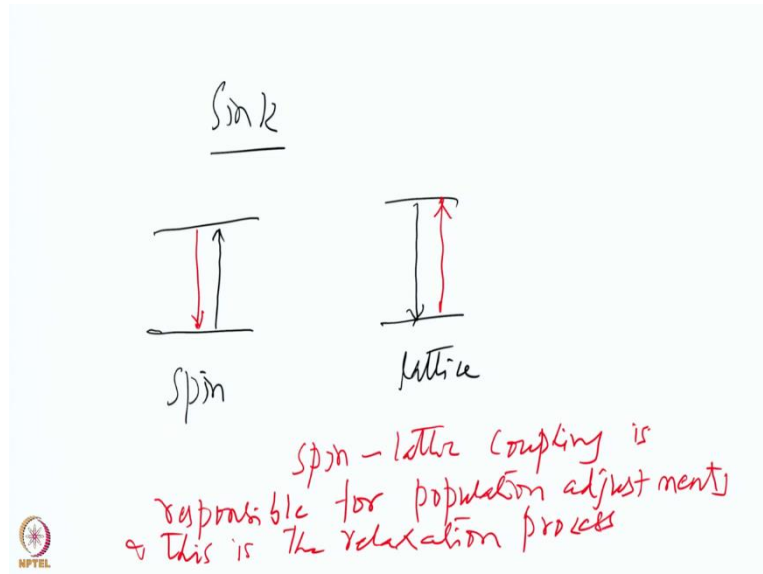 Sink
Spin
lattice
spin - lattice coupling is
responsible for population adjustments
& this is the relaxation process
NPTEL